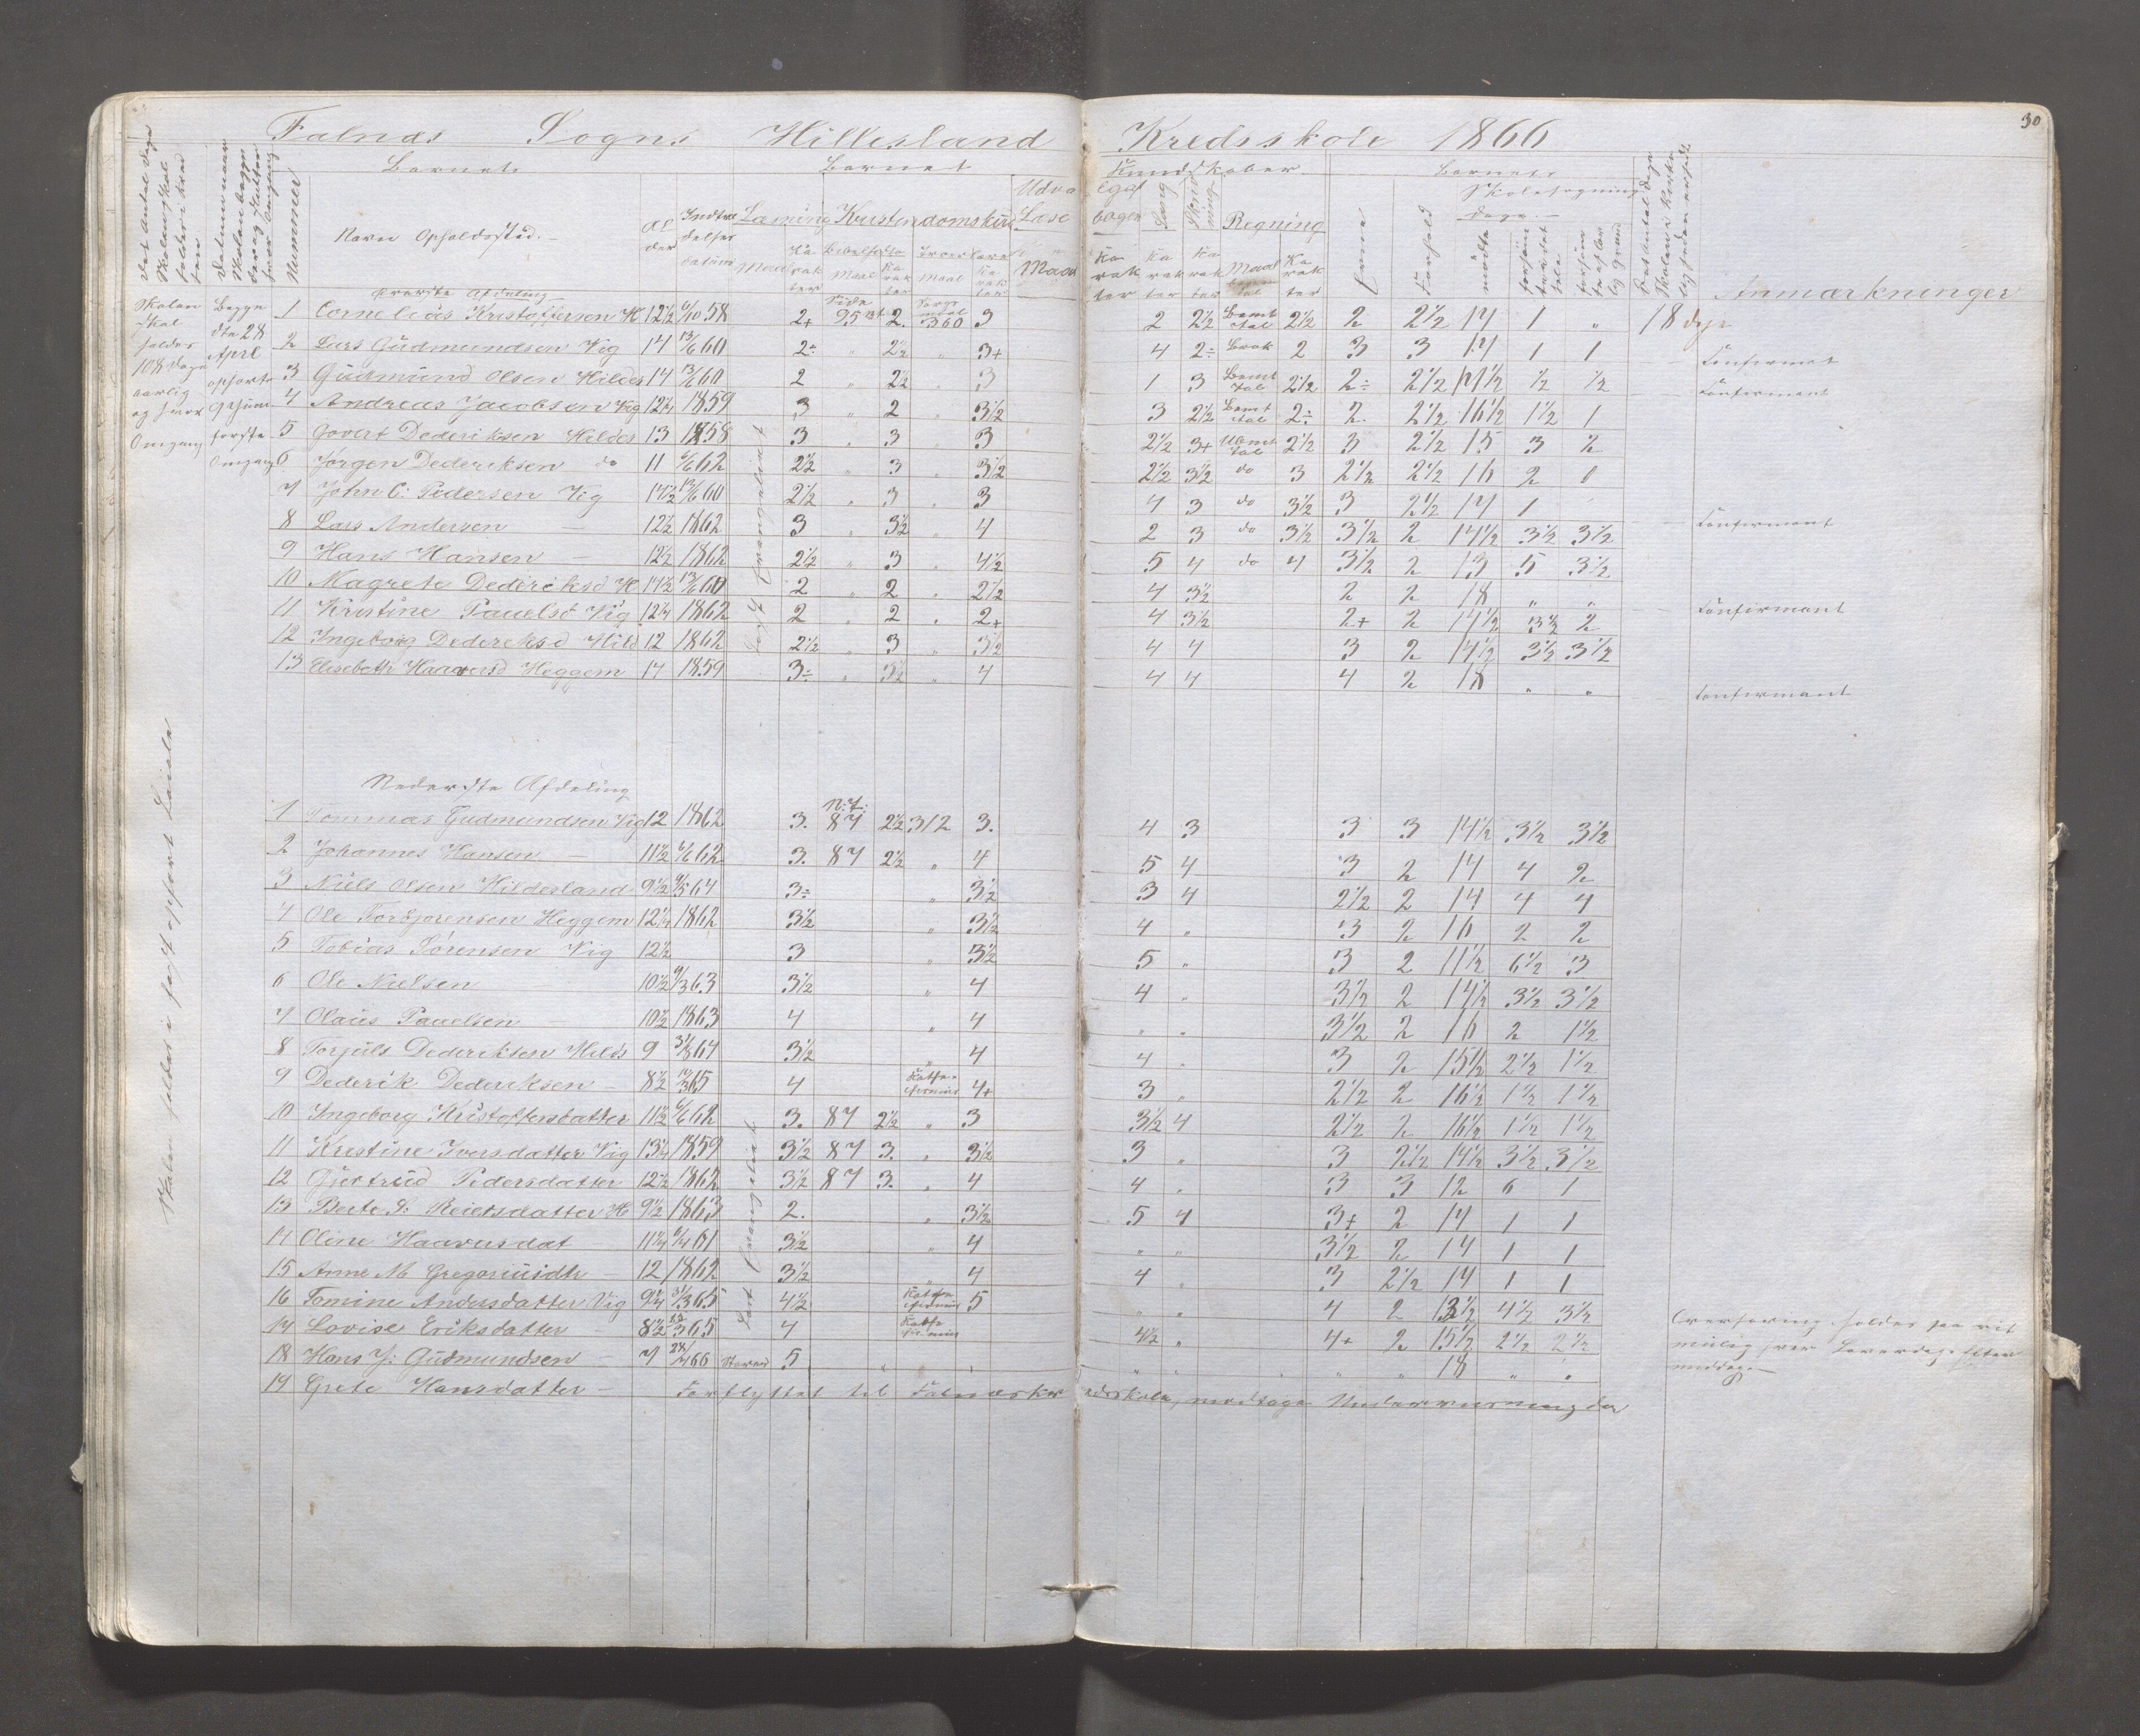 30
Falnæs Sogns Hillesland Kredsskole 1866
Barnets Barnets Kundskaber Barnets
Nummer Navn Opholdssted. Alder Indtrædelses datum Læsning Kristendomskund Udvalgte Læsebøger Sang Skrivning Regning Evne Forhold Skolesøgning dage Anmærkninger
Maal Karakter Bibelhistorie Maal Karakter Troeslære Maal Karakter Maal Karakter Karakter Karakter Maal Karakter mødte forsømte
Skolen skal holdes 108 Dage aarlig og hver Omgang
Begyndte 28 April ophørte 9 Juni første Omgang
Skolen holdes i fast opført Locale
Øverste Afdeling
1 Cornelius Kristoffersen H 12½ 6/10 58 2+ Side 95 2. 360 3 2 2½ Bemt tal 2½ 2 2½ 17 1 „ 18 dage
2 Lars Gudmundsen Vig 14 13/6 60 2÷ „ 2½ „ 3+ 4 2÷ Brøk 2 3 3 17 1 1 Confirmant
3 Gudmund Olsen Hildes 14 13/6 60 2 „ 2½ „ 3 1 3 Bemt tal 2½ 2÷ 2½ 17½ ½ ½ Confirmant
4 Andreas Jacobsen Vig 12¼ 1859 3 „ 2 3½ 3 2½ Bemt tal 2÷ 2 2½ 16½ 1½ 1
5 Govert Dederiksen Hildes 13 1858 3 „ 3 3 2½ 3+ Ubmt tal 2½ 3 2½ 15 3 2
6 Jørgen Dederiksen do 11 6/6 62 2½ „ 3 3½ 2½ 3½ do 3 2½ 2½ 16 2 0
7 John C: Pedersen Vig 14½ 13/6 60 2½ „ 3 „ 3 4 3 do 3½ 3 2½ 17 1
8 Lars Andersen — 12½ 1862 3 „ 3½ „ 4 2 3 do 3½ 3½ 2 14½ 3½ 3½ Confirmant
9 Hans Hansen — 12½ 1862 2½ „ 3 „ 4½ 5 4 do 4 3½ 2 13 5 3½
10 Magrete Dederiksd H 14½ 13/6 60 2 „ 2 „ 2½ 4 3½ 2 2 18 „ „
11 Kristine Pauelsd Vig 12¼ 1862 2 „ 2 „ 2+ 4 3½ 2+ 2 14½ 3½ 2 Confirmant
12 Ingeborg Dederiksd Hild 12 1862 2½ „ 3 „ 3½ 4 4 3 2 14½ 3½ 3½
13 Elisabeth Haaversd Heggem 14 1859 3÷ „ 3½ „ 4 4 4 4 2 18 „ „ Confirmant
Nederste Afdeling
1 Tommas Gudmundsen Vig 12 1862 3. N.T. 87 2½ 312 3. 4 3 3 3 14½ 3½ 3½
2 Johannes Hansen — 11½ 6/6 62 3. 87 2½ „ 4 5 4 3 2 14 4 2
3 Niels Olsen Hildesland 9½ 9/5 64 3÷ 3½ 3 4 2½ 2 14 4 4
4 Ole Torbjørensen Heggem 12¼ 1862 3½ „ 3½ 4 „ 3 2 16 2 2
5 Tobias Sørensen Vig 12½ 3 „ 3½ 5 „ 3 2 11½ 6½ 3
6 Ole Nielsen 10½ 9/3 63 3½ „ 4 4 „ 3½ 2 14½ 3½ 3½
7 Olaus Pauelsen — 10½ 1863 4 „ 4 „ „ 3½ 2 16 2 1½
8 Torjuls Dederiksen Hilds 9 31/8 64 3½ „ 4 4 „ 3 2 15½ 2½ 1½
9 Dederik Dederiksen — 8½ 10/3 65 4 4+ 3 „ 2½ 2 16½ 1½ 1½
10 Ingeborg Kristoffersdatter 11½ 6/6 62 3. 87 2½ „ 3 3½ 4 2½ 2 16½ 1½ 1½
11 Kristine Iversdatter Vig 13¼ 1859 3½ 87 3. „ 3½ 3 „ 3 2½ 14½ 3½ 3½
12 Gjertrud Pedersdatter 12½ 1862 3½ 87 3. „ 4 4 „ 3 3 12 6 1
13 Berte S: Reiersdatter H 9½ 1863 2. „ 3½ 5 4 3+ 2 17 1 1
14 Oline Haaversdat 11¼ 6/4 61 3½ „ 4 „ „ 3½ 2 17 1 1
15 Anne M Gregoriusdtr — 12 1862 3½ „ 4 4 „ 3 2½ 17 1 1
16 Tomine Andersdatter Vig 9¼ 31/3 65 4½ 5 „ „ 4 2 13½ 4½ 3½
17 Lovise Eriksdatter — 8½ 3 65 4 4½ „ 4+ 2 15½ 2½ 2½
18 Hans J: Gudmundsen — 7 28/4 66 Staved 5 „ „ „ „ „ 18 „ „
19 Grete Hansdatter — Forflyttet til Falnæs Kredsskole, modtager Undervisning der
Overhøring holdes saa vidt mulig hver Løverdags Eftermiddag. —